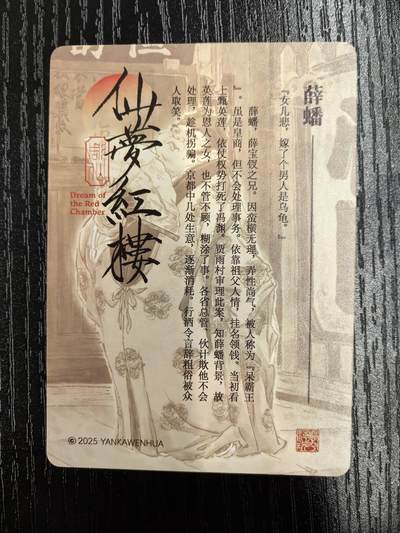 薛蟠——
『女儿悲，嫁了个男人是乌龟。』
薛蟠，薛宝钗之兄。因蛮横无理，弄性尚气，被人称为『呆霸王
』。虽是皇商，但不会处理事务。依靠祖父人情，挂名领钱。当初看
上甄英莲，依仗权势打死了冯渊。贾雨村审理此案，知薛蟠背景，故
英莲为恩人之女，也不管不顾，糊涂了事。各省总管、伙计欺他不会
处理，趁机拐骗。京都中几处生意，逐渐消耗。行酒令言辞粗俗被众
人取笑。
仙夢紅樓
Dream of
the Red
Chamber
© 2025 YANKAWENHUA